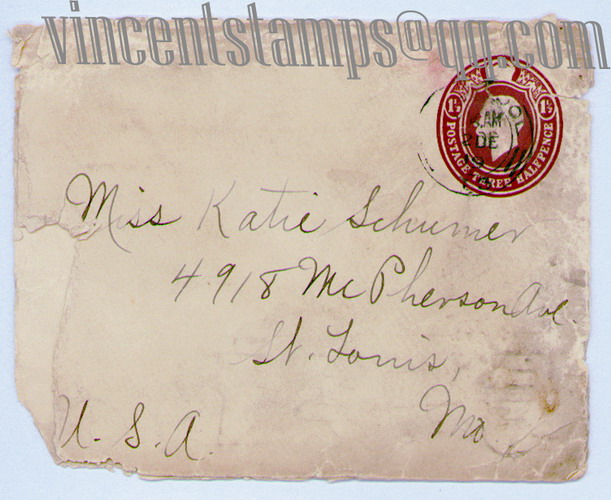 vincentstamps@qq.com
1½ 1½
POSTAGE THREE HALFPENCE
AM
DE
Miss Katie Schumer
4918 McPherson Ave.
St. Louis,
Mo.
U. S. A.